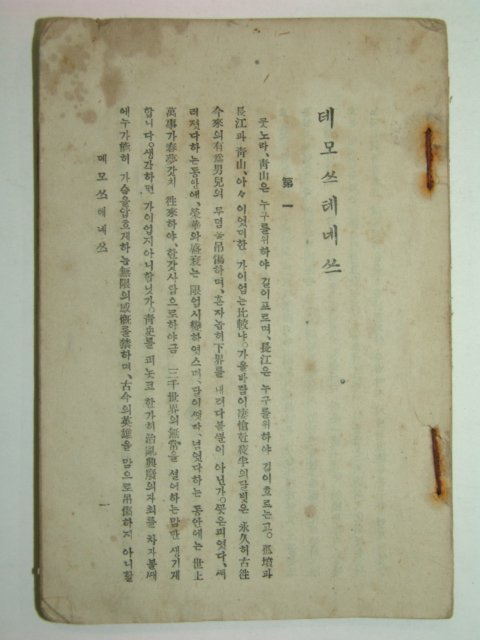 데모쓰테네쓰
第一
뭇노라, 靑山은 누구를위하야 길이프르며, 長江은 누구를위하야 길이흐르는고。孤墳과
長江과 靑山, 아々 이엇더한 가이업는比較냐。가을바람이凄愴한夜半의달빗은 永久히古往
今來의有爲男兒의 무덤을吊傷하며, 혼자놉히下界를 내려다볼뿐이 아닌가。꼿은피엿다, 써
러젓다하는동안에, 榮華와盛衰는 限업시極하엿스며, 달이떳다, 넘엇다하는 동안에는 世上
萬事가春夢갓치 往來하야, 한갓사람으로하야금 三千世界의無常을 설어하는맘만 생기게
합니다。생각하면 가이업지아니합닛가。靑史를 펴놋코 한가히治亂興廢의자최를 차자볼때
에누가能히 가슴을압흐게하는無限의感慨를禁하며、古今의英雄을 맘으로吊傷하지 아니할
데모쓰테네쓰
一